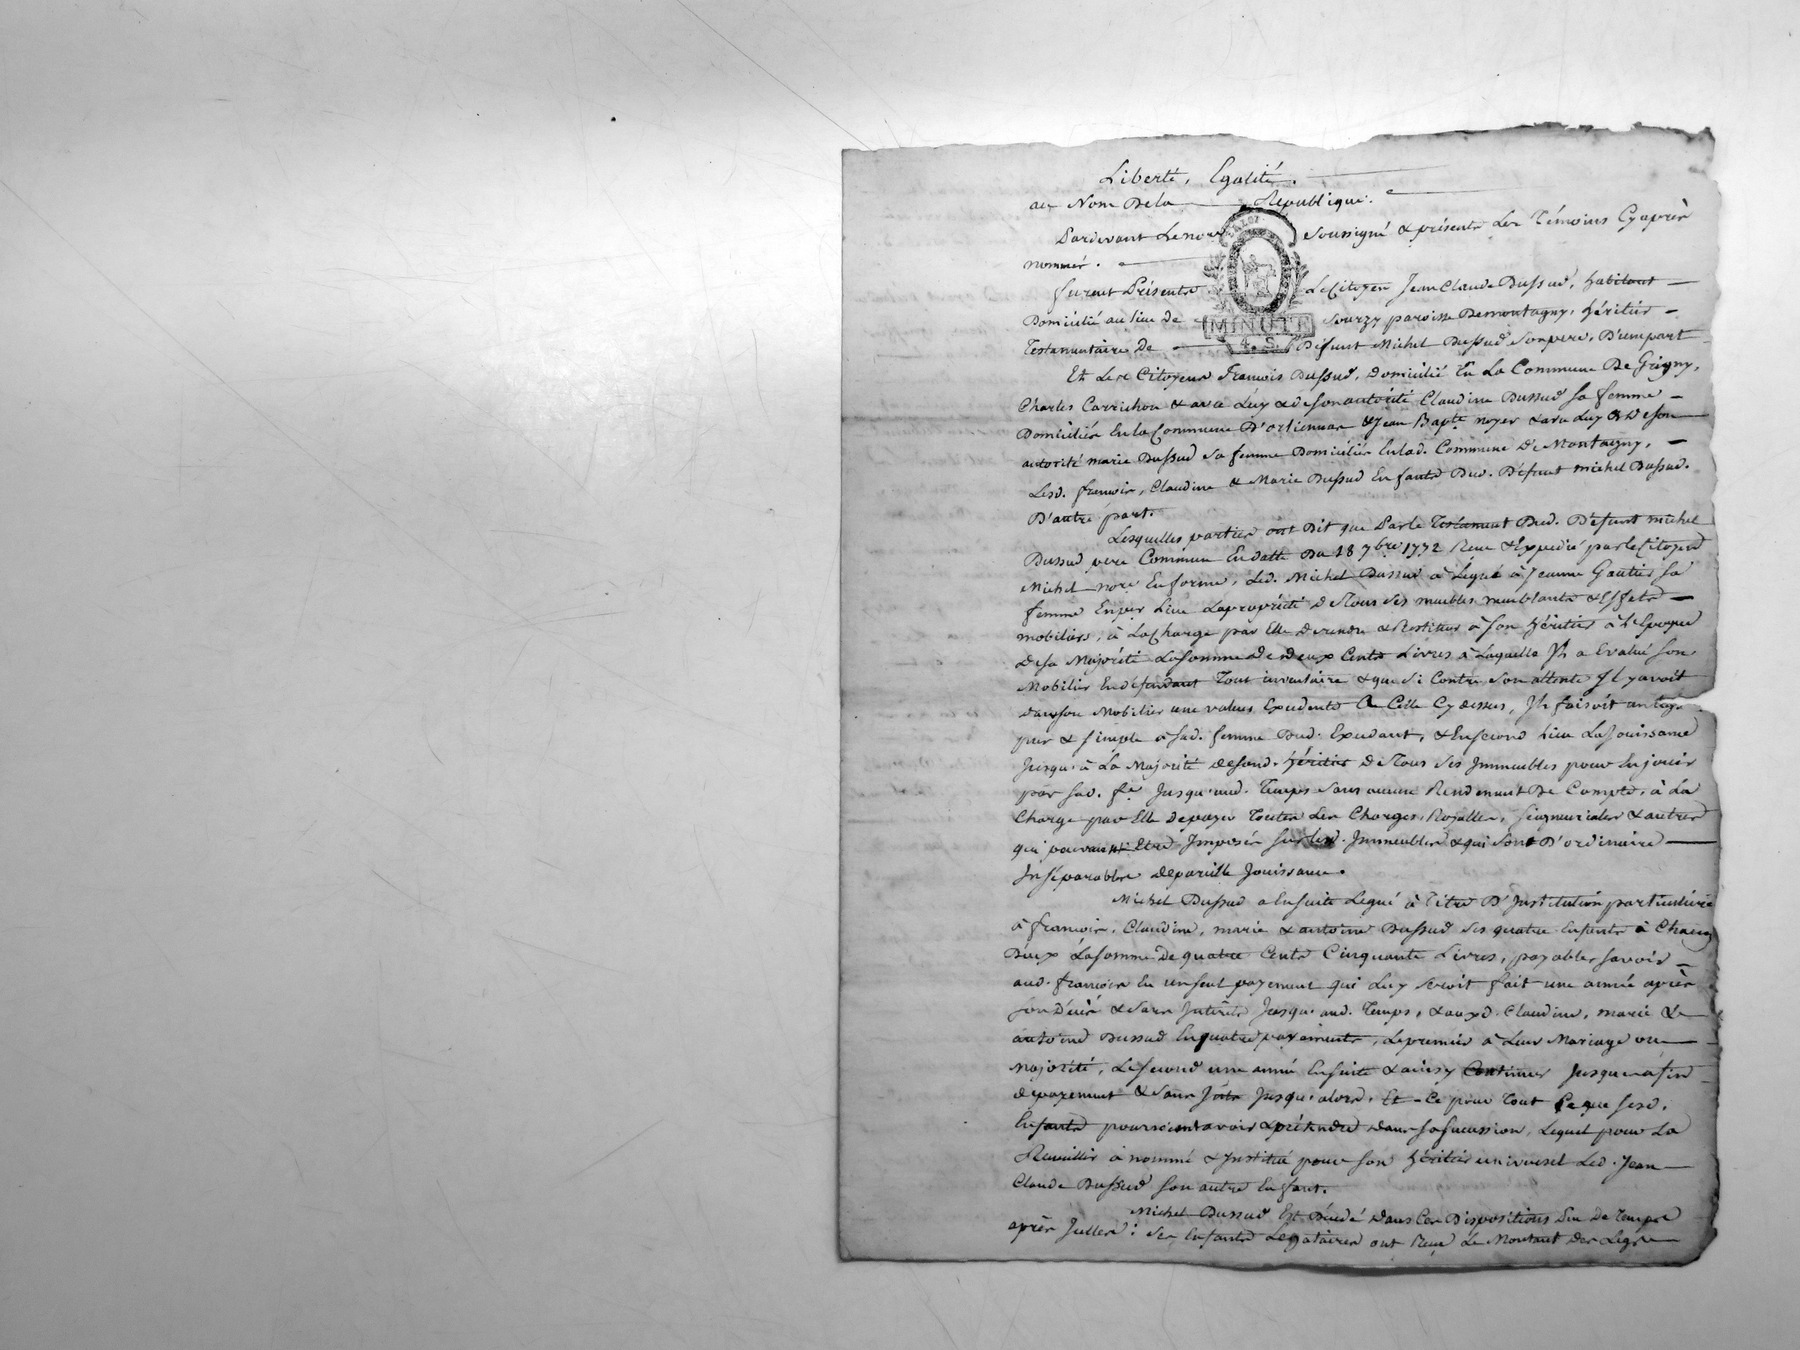 Liberté, Egalité.
au Nom De la République.
Pardevant Le nore Soussigné & présents Les Témoins Cy après
nommés.
furent Présents Le Citoyen Jean Claude Dussud, habitant
Domicilié au lieu de Sourzy paroisse De montagny, héritier
Testamentaire De Défunt Michel Dussud Son pere, D'une part
LA LOI
MINUTE
4. S.
Et Les Citoyens françois Dussud, Domicilié En La Commune De Grigny,
Charles Carrichon & avec Luy & de Son autorité Claudine Dussud Sa femme
Domiciliés En la Commune D'orlienas & Jean Bapte noyer & avec Luy & De Son
autorité marie Dussud Sa femme Domiciliés En lad. Commune De Montagny,
Lesd. françois, Claudine & Marie Dussud Enfants Dud. Défunt michel Dussud.
D'autre part.
Lesquelles parties ont Dit que Par le Testament Dud. Défunt michel
Dussud pere Commun En datte Du 18 7bre 1772 Reçu & Expedié par le Citoyen
Michel nore En forme, Led. Michel Dussud à Legué à Jeanne Gautier Sa
femme En per Lieu La propriété De Tous Ses meubles meublants & Effets
mobiliers, à La Charge par Elle De rendre & Restituer à Son héritier à L'Epoque
De Sa Majorité La Somme De Deux Cents Livres à Laquelle Jl a Evalué Son
Mobilier En défendant Tout inventaire & que Si Contre Son attente Jl y avoit
dans Son Mobilier une valeur Excedente à Celle Cy dessus, Jl faisoit un Legs
pur & Simple à Sad. femme Dud. Excedant, & En Second Lieu La Jouissance
Jusqu'à La Majorité De Sond. héritier De Tous Ses Jmmeubles pour En jouir
par Sad. fe Jusqu'aud. Temps Sans aucun Rendement De Compte, à La
Charge par Elle De payer Toutes Les Charges, Royalles, Seigneuriales & autres
qui pouvoient Etre Jmposés Sur Lesd. Jmmeubles & qui Sont D'ordinaire
Jnséparables De pareille Jouissance.
Michel Dussud a Ensuite Legué à Titre D'Jnstitution particulière
à françois, Claudine, marie & antoine Dussud Ses quatre Enfants à Chacun
Deux La Somme De quatre Cents Cinquante Livres, payables Savoir
aud. françois En un Seul payement qui Luy Seroit fait une année après
Son Décès & Sans Jntérêts Jusqu'aud. Temps, & auxd. Claudine, marie &
antoine Dussud En quatre payements, Le premier à Leur Mariage ou
Majorité, Le Second une année Ensuite & ainsy Continuer Jusqu'a fin
de payement & Sans Jnts Jusqu'alors, Et Ce pour Tout Ce que Sesd.
Enfants pourroient avoir & prétendre dans Sa Succession, Lequel pour La
Recueillir à nommé & Jnstitué pour Son héritier universel Led. Jean
Claude Dussud Son autre Enfant.
Michel Dussud Est Décédé dans Ces Dispositions De Temps
après Jcelles: Ses Enfants Légataires ont Reçu Le Montant Des Legs